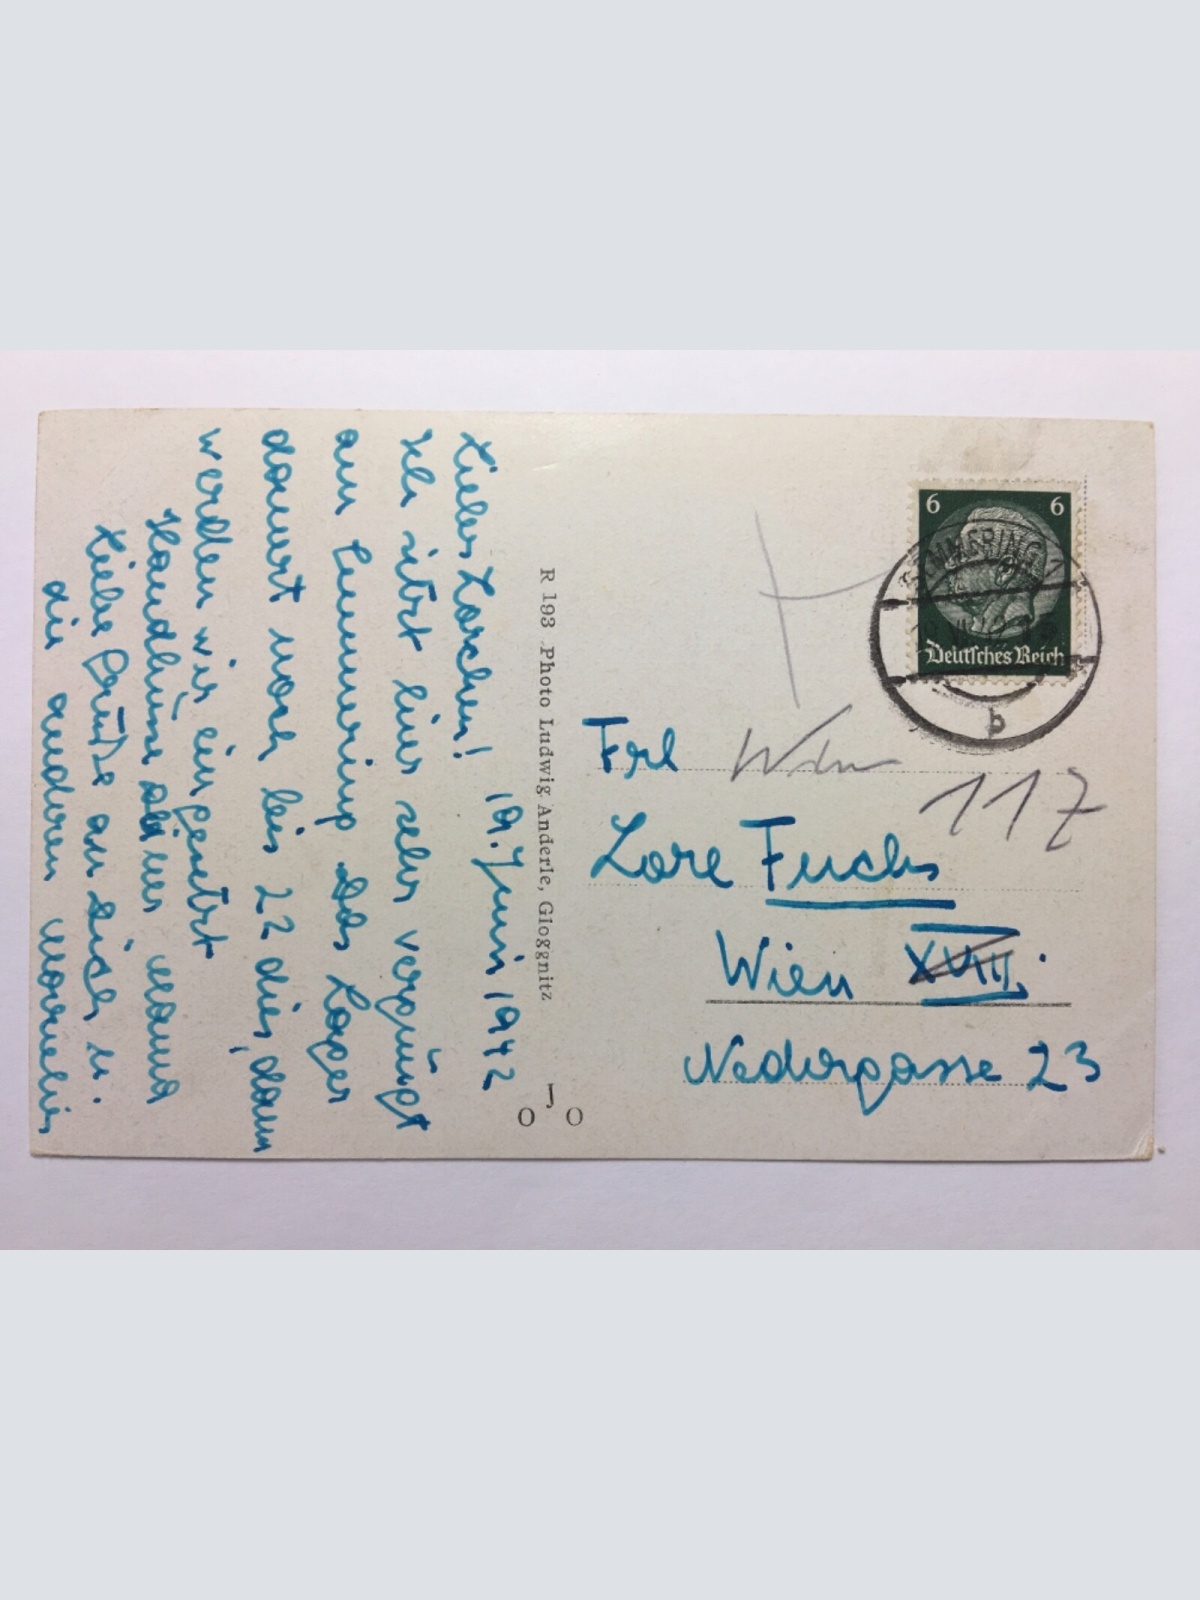 19. Juni 1942
Liebes Lorchen!
Ich sitze hier sehr vergnügt
am Semmering Das Lager
dauert noch bis 22 dies, dann
werden wir eingesetzt
Liebe Grüße an Dich u.
die anderen
R 193 Photo Ludwig Anderle, Gloggnitz
J
O O
6 6
SEMMERING 1
Deutsches Reich
b
Frl Wien
117
Lore Fuchs
Wien XVIII.
Nedergasse 23